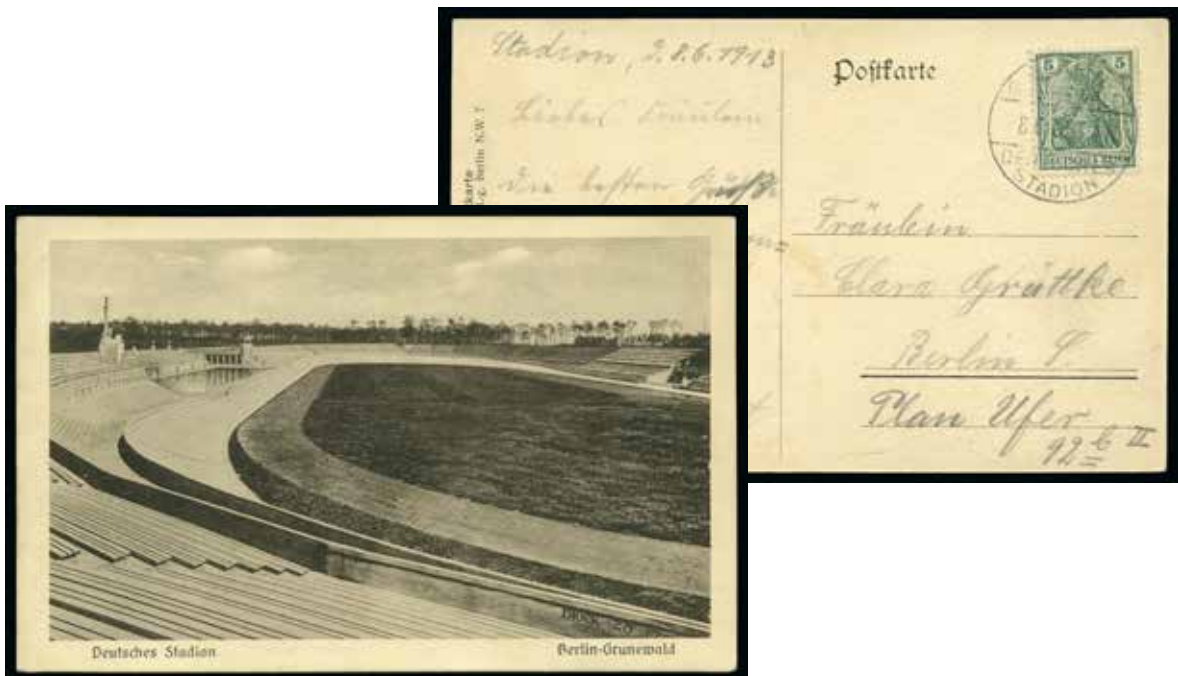 Stadion, 28.6.1913
Liebes Fräulein
die besten Grüße
Postkarte
5 5
DEUTSCHES REICH
STADION
karte
lg. Berlin N.W. 7
Fräulein
Clara Grüttke
Berlin S.
Plan Ufer
92 b II
Deutsches Stadion
Berlin-Grunewald